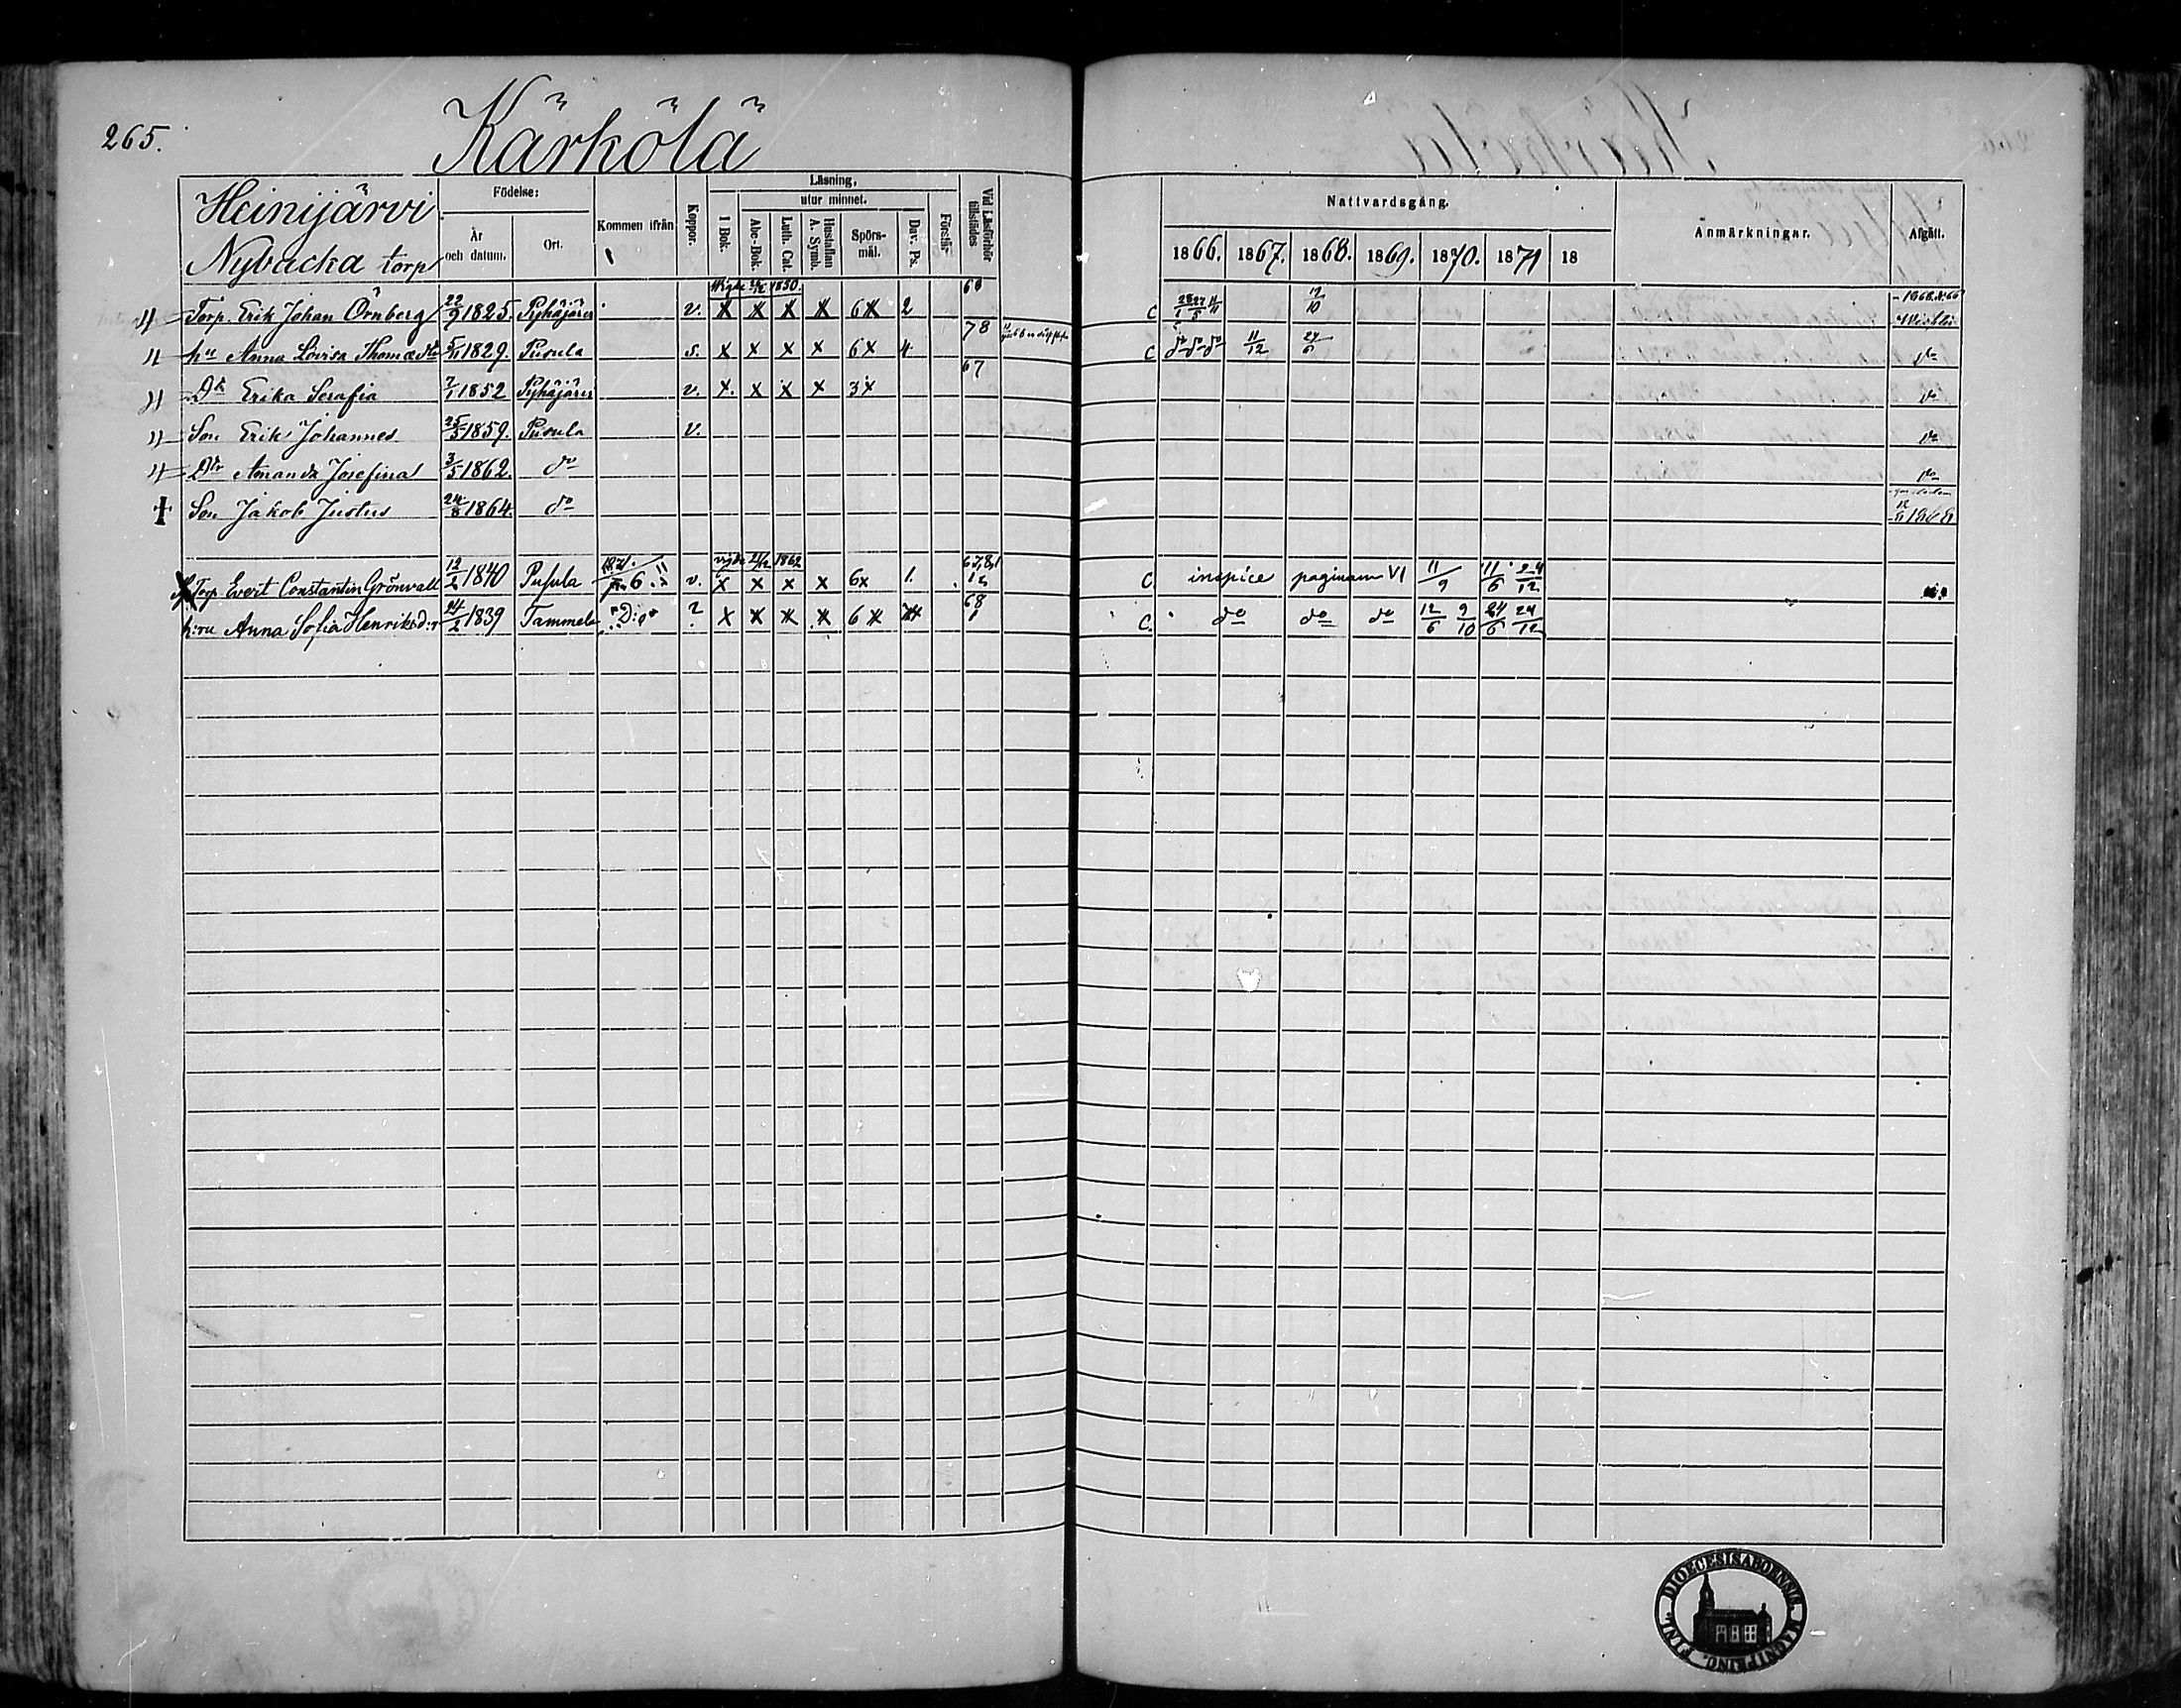 265.
Kärkölä
Heinijärvi
Nybacka torp
Födelse:
År och datum.
Ort.
Kommen ifrån
Koppor.
Läsning,
utur minnet.
I Bok.
Abc-Bok.
Luth. Cat.
Hustaflan A. Symb.
Spörsmål.
Dav. Ps.
Förstår
Vid Läsförhör tillstädes
Nattvardsgång.
1866. 1867. 1868. 1869. 1870. 1871 18
Anmärkningar.
Afgått.
1850. 68
Torp. Erik Johan Örnberg 22/9 1825. Pyhäjärvi v. X X X X 6X 2 C 12/10 1868. N:66
78
hu Anna Lovisa Thomædr 5/11 1829. Pusula s. X X X X 6X 4 C do do do 11/12 do
67
Dr Erika Serafia 7/1 1852 Pyhäjärvi v. X. X X X 3X do
Son Erik Johannes 25/5 1859. Pusula v. do
Dr Amanda Josefina 3/5 1862. do do
Son Jakob Justus 24/8 1864. do 1868
1871. vigde 1862
Torp Evert Constantin Grönvall 12/2 1840 Pusula v. X X X X 6x 1. C. inspice paginam VI 11/9 11/6 24/12
68
h:ru Anna Sofia Henriksd:r 24/2 1839 Tammela D:o ? X X X X 6X C. do do do 12/6 9/10 24/6 24/12
DIOECESIS ABOENSIS MAGNI PRINC. FINL.